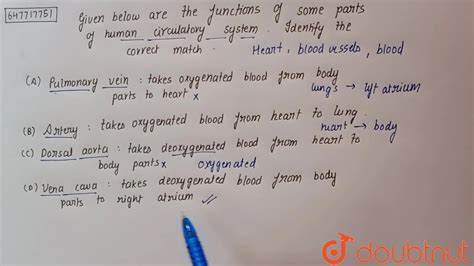 647717751
Given below are the functions of some parts
of human circulatory system. Identify the
correct match. Heart, blood vessels, blood
(A) Pulmonary vein : takes oxygenated blood from body
parts to heart x lungs → lyt atrium
(B) Artery : takes oxygenated blood from heart to lung.
heart → body
(C) Dorsal aorta : takes deoxygenated blood from heart to
body parts x oxygenated
(D) Vena cava : takes deoxygenated blood from body
parts to right atrium ✓
doubtnut